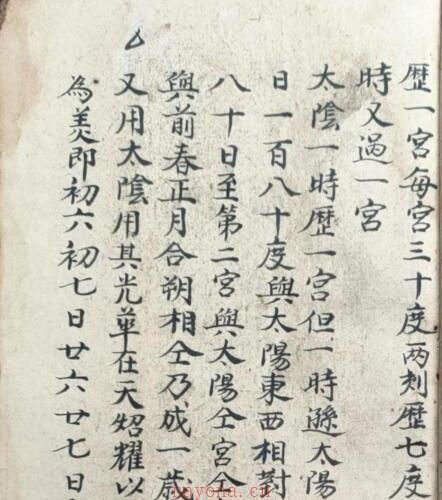 歷一宮每宮三十度兩刻歷七度
時又過一宮
太陰一時歷一宮但一時遜太陽
日一百八十度與太陽東西相對
八十日至第二宮與太陽仝宮
與前春正月合朔相仝乃成一歲
又用太陰用其光華在天炤耀以
為美即初六初七日廿六廿七日
nayona.cn